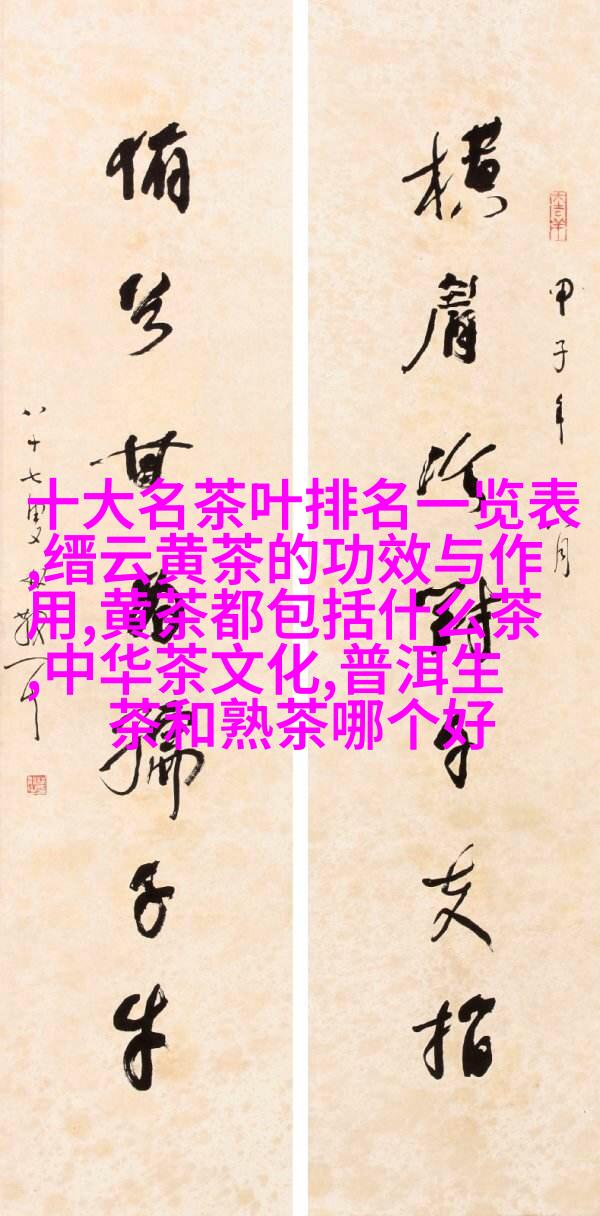 横眉冷對千夫指
甲子年
月
俯首甘為孺子牛
八十七叟
十大名茶叶排名一览表
,缙云黄茶的功效与作
用,黄茶都包括什么茶
,中华茶文化,普洱生
茶和熟茶哪个好